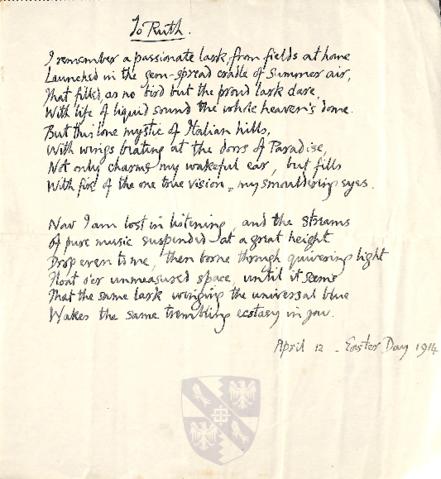 To Ruth.
I remember a passionate lark from fields at home
Launched in the gem-spread cradle of summer air,
That filled, as no bird but the proud lark dare,
With life of liquid sound the whole heaven's dome.
But this lone mystic of Italian hills,
With wings beating at the doors of Paradise,
Not only charms my wakeful ear, but fills
With fire of the one true vision, my smouldering eyes.
Now I am lost in listening, and the streams
of pure music suspended at a great height
Drop even to me, then borne through quivering light
Float o'er unmeasured space, until it seems
That the same lark winging the universal blue
Wakes the same trembling ecstasy in you.
April 12 - Easter Day 1914